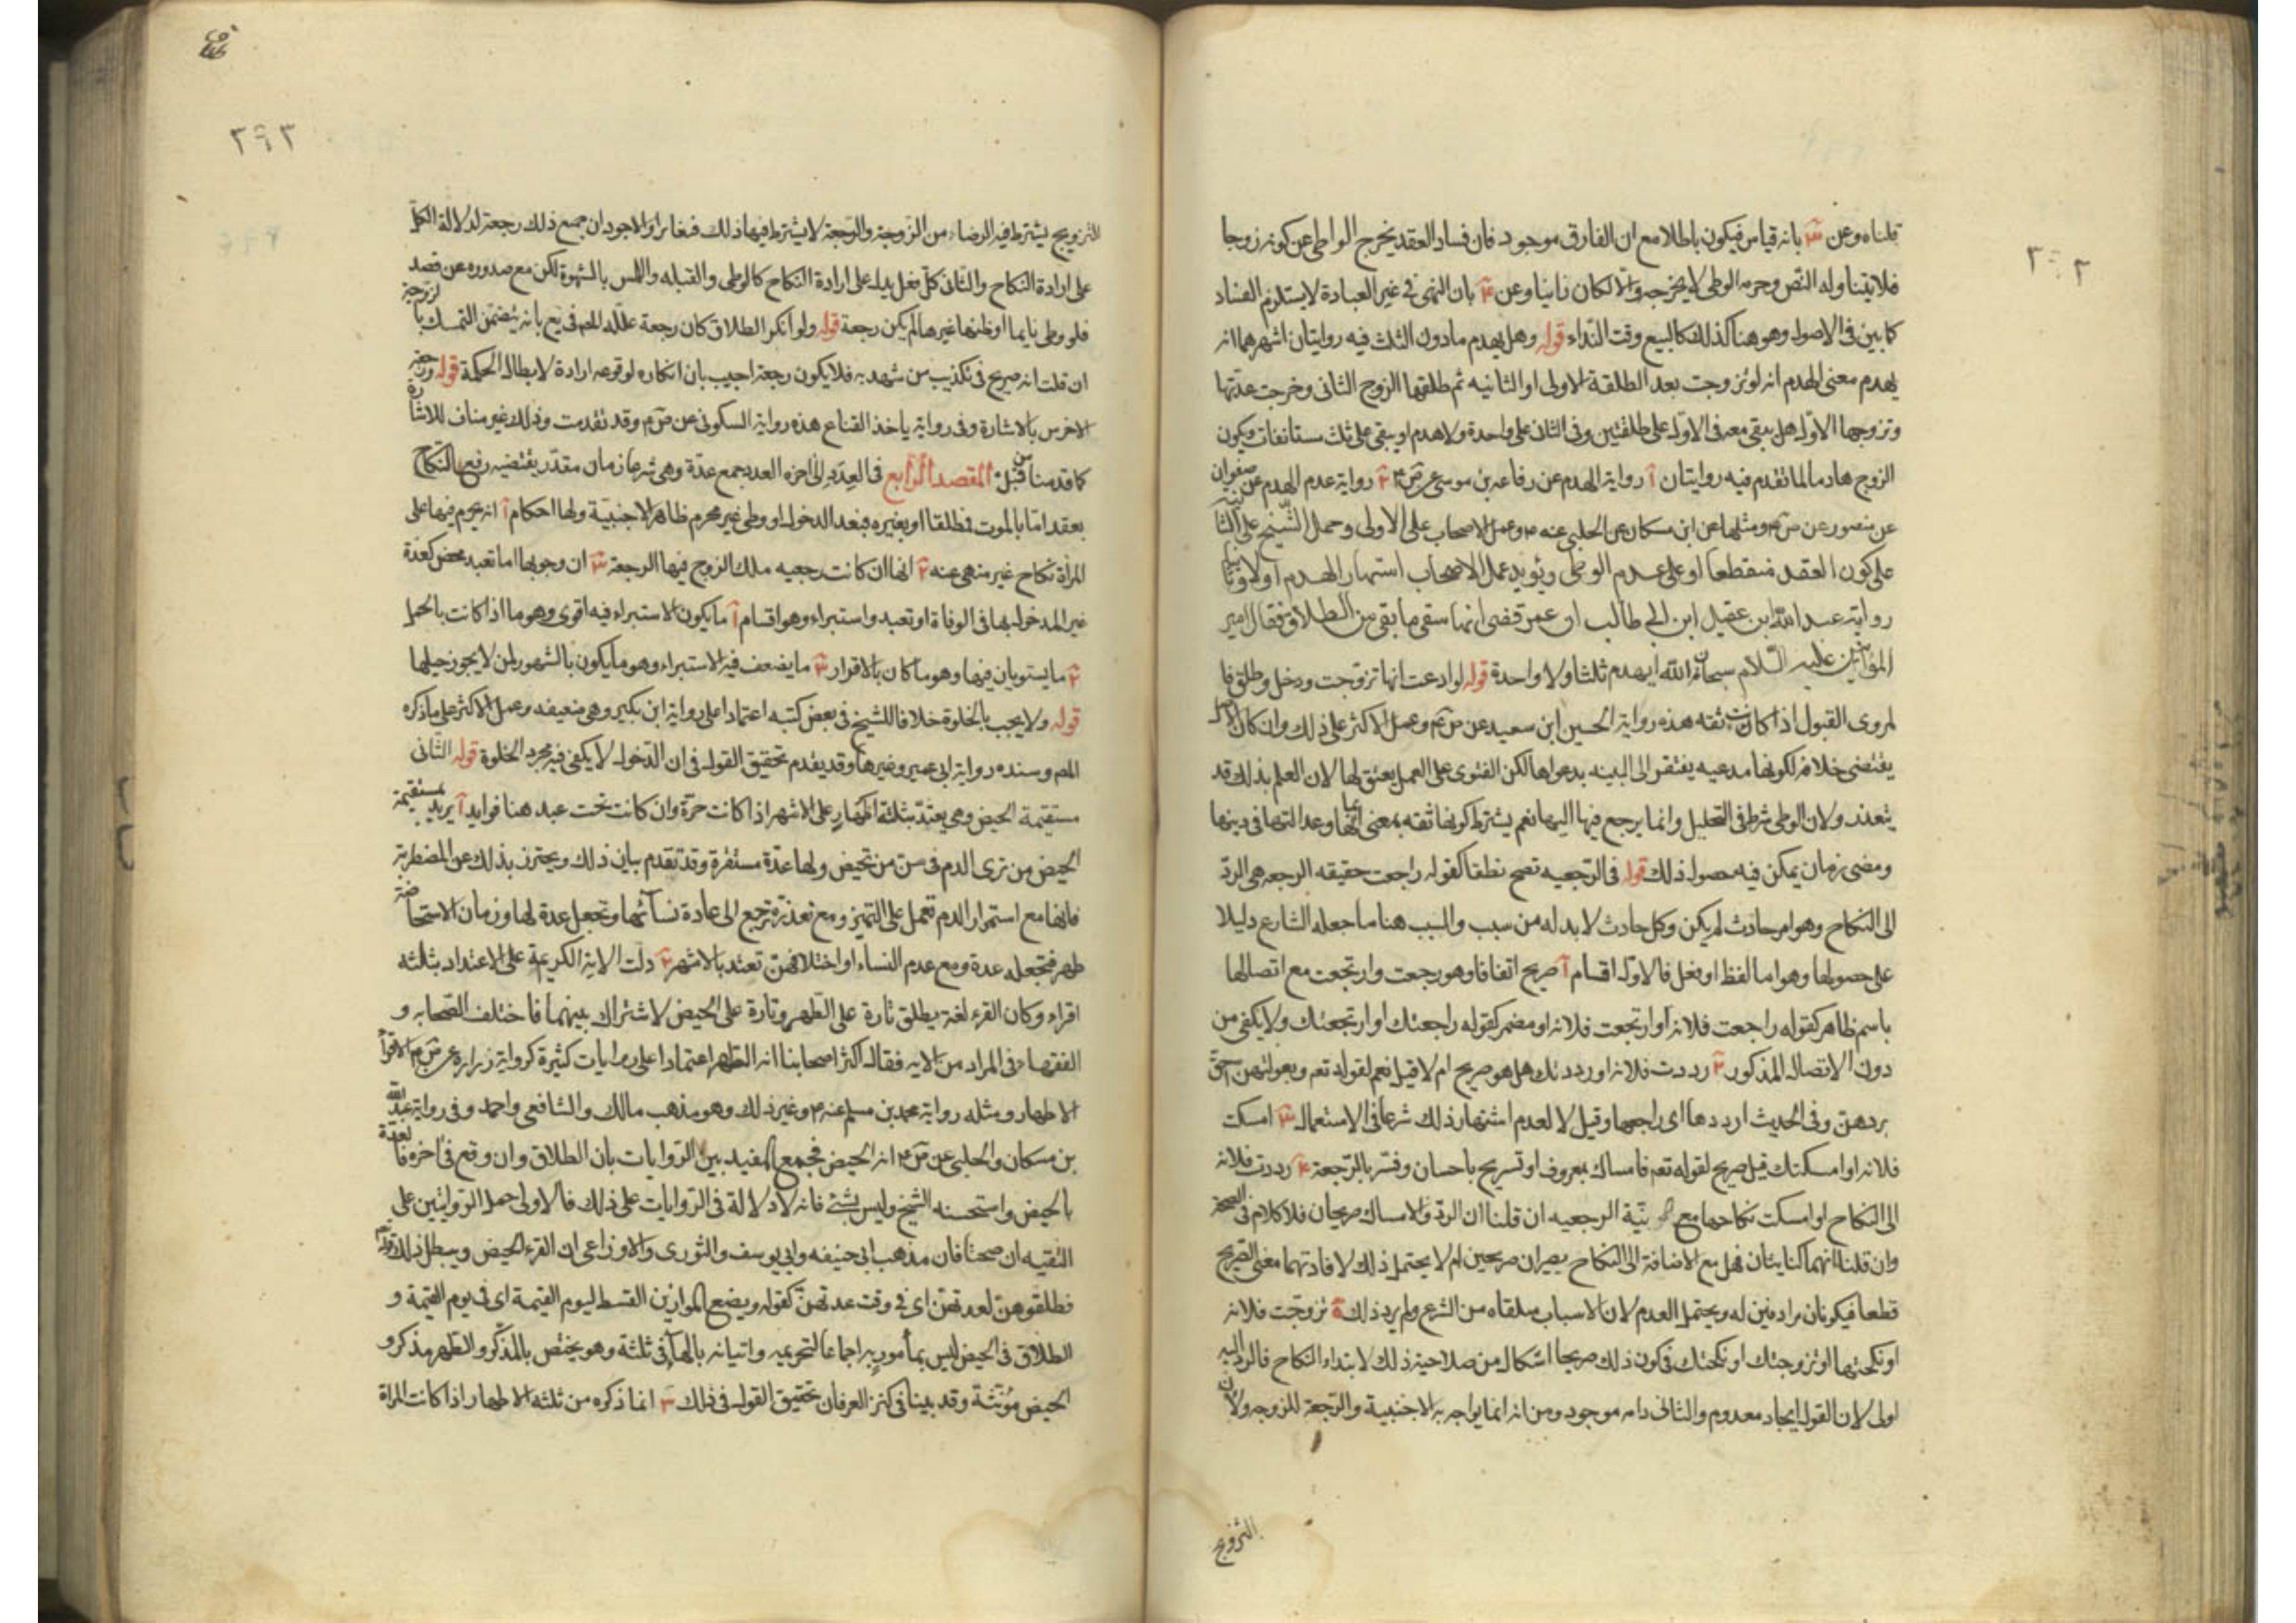 ٢٩٢
قلناه وعن ٣ بانه قياس فيكون باطلا مع ان الفارق موجود فان فساد العقد يخرج الواطى عن كونه زوجا
فلا يتناوله النص وحرمه الوطى لا يخرجه والا لكان زانيا وعن ٤ بان النهى فى غير العبادة لا يستلزم الفساد
كما بين فى الاصول وهو هنا كذلك كالبيع وقت النداء قوله وهل يهدم مادون الثلث فيه روايتان اشهرهما انه
يهدم معنى الهدم انه لو تزوجت بعد الطلقة الاولى او الثانيه ثم طلقها الزوج الثانى وخرجت عدتها
وتزوجها الاول هل يبقى معه فى الاول على طلقتين وفى الثانى على واحدة ولا هدم او يبقى على ثلث مستانفات ويكون
الزوج هادما لما تقدم فيه روايتان آ رواية الهدم عن رفاعه بن موسى عن ص م ٢ رواية عدم الهدم عن صفوان
عن منصور عن ص م ومثلها عن ابن مسكان عن الحلبى عنه م وعمل الاصحاب على الاولى وحمل الشيخ على الثانيه
على كون العقد منقطعا او على عدم الوطى ويؤيد عمل الاصحاب اشتهار الهدم اولا وثانيا
رواية عبد الله بن عقيل ابن ابى طالب ان عمر قضى انها سقى ما بقى من الطلاق فقال امير
المؤمنين عليه السلام سبحان الله ايهدم ثلثا ولا واحدة قوله لو ادعت انها تزوجت ودخل وطلق فا
لمروى القبول اذا كانت ثقه هذه رواية الحسين ابن سعيد عن ص م وعمل الاكثر على ذلك وان كان الاصل
يقتضى خلافه لكونها مدعيه يفتقر الى البينه بدعواها لكن الفتوى على العمل بقولها لان العلم بذلك قد
يتعذر ولان الوطى شرط فى التحليل وانما يرجع فيها اليها نعم يشترط كونها ثقه بمعنى وعدالتها فى دينها
ومضى زمان يمكن فيه حصول ذلك قوله فى الرجعيه تصح نطقا كقوله راجعت حقيقه الرجعه هى الرد
الى النكاح وهو امر حادث لم يكن وكل حادث لا بد له من سبب والسبب هنا ما جعله الشارع دليلا
على حصولها وهو اما لفظ او فعل فالاول اقسام آ صريح اتفاقا وهو رجعت وارتجعت مع اتصالها
باسم ظاهر كقوله راجعت فلانه او ارتجعت فلانه او مضمر كقوله راجعتك او ارتجعتك ولا يكفى من
دون الاتصال المذكور ٢ رددت فلانه او رددتك هل هو صريح ام لا قيل نعم لقوله تعم وبعولتهن احق
بردهن وفى الحديث ارددها اى راجعها وقيل لا لعدم اشتهار ذلك شرعا فى الاستعمال ٣ امسكت
فلانه او امسكتك قيل صريح لقوله تعم فامساك بمعروف او تسريح باحسان وفسر بالرجعة ٤ رددت فلانه
الى النكاح او امسكت نكاحها مع نية الرجعيه ان قلنا ان الرد والامساك صريحان فلا كلام فى الصحة
وان قلنا انهما كنايتان فهل مع الاضافة الى النكاح يصيران صريحين ام لا يحتمل ذلك لافادتهما معنى الصريح
قطعا فيكونان مرادفين له ويحتمل العدم لان الاسباب متلقاه من الشرع ولم يرد ذلك ٥ تزوجت فلانه
او نكحتها او تزوجتك او نكحتك فى كون ذلك صريحا اشكال من صلاحية ذلك لابتداء النكاح فالرد اليه
اولى لان القول ايجاد معدوم والثانى دامه موجود ومن انه انما يواجه به الاجنبية والرجعة للزوجه ولان
التزويج
٢٩٣
التزويج يشترط فيه الرضاء من الزوجة والرجعة لا يشترط فيها ذلك فتغايرا والاجود ان جميع ذلك رجعة لدلالة الكل
على ارادة النكاح والثانى كل فعل يدل على ارادة النكاح كالوطى والقبله واللمس بالشهوة لكن مع صدوره عن قصد
فلو وطى نايما او ظنها غيرها لم يكن رجعة قوله ولو انكر الطلاق كان رجعة علله المص فى يع بانه يتضمن التمسك بالزوجية
ان قلت انه صريح فى تكذيب من شهد به فلا يكون رجعة اجيب بان انكاره لوقوعه ارادة لابطال الحكمة قوله ورجعة
الاخرس بالاشارة وفى رواية ياخذ القناع هذه رواية السكونى عن ص م وقد تقدمت وذلك غير مناف للاشارة
كما قدمنا من قبل المقصد الرابع فى العِدَدِ الى اخره العدد جمع عدة وهى شرعا زمان مقدر يقتضيه رفع النكاح
بعقد اما بالموت فطلقا او بغيره فبعد الدخول او وطى غير محرم ظاهر الاجنبية ولها احكام آ انه يحرم فيها على
المراة نكاح غير منهى عنه ٢ انها ان كانت رجعيه ملك الزوج فيها الرجعة ٣ ان وجوبها اما تعبد محض كعدة
غير المدخول بها فى الوفاة او تعبد واستبراء وهو اقسام آ ما يكون الاستبراء فيه اقوى وهو ما اذا كانت بالحمل
٢ ما يستويان فيها وهو ما كان بالاقرار ٣ ما يضعف فيه الاستبراء وهو ما يكون بالشهور لمن لا يجوز حبلها
قوله ولا يجب بالخلوة خلافا للشيخ فى بعض كتبه اعتمادا على رواية ابن بكير وهى ضعيفه وعمل الاكثر على ما ذكره
المص وسنده رواية ابى عمير وغيرها وقد تقدم تحقيق القول فى ان الدخول لا يكفى فيه مجرد الخلوة قوله الثانى
مستقيمة الحيض وهى يعتد بثلثه اظهار على الاشهر اذا كانت حرة وان كانت تحت عبد هنا فوايد آ يريد بمستقيمة
الحيض من ترى الدم فى سن من تحيض ولها عدة مستقرة وقد تقدم بيان ذلك ويحترز بذلك عن المضطربة
فانها مع استمرار الدم تعمل على التميز ومع تعذره ترجع الى عادة نسائها وتجعل عدة لها وزمان الاستحاضة
طهر فتجعله عدة ومع عدم النساء او اختلافهن تعتد بالاشهر ٢ دلت الاية الكريمة على الاعتداد بثلثه
اقراء وكان القرء لغة يطلق تارة على الطهر وتارة على الحيض لاشتراك بينهما فاختلف الصحابه و
الفقهاء فى المراد من الايه فقال اكثر اصحابنا انه الطهر اعتمادا على روايات كثيرة كرواية زراره عن ص م الاقراء
الاطهار ومثله رواية محمد بن مسلم عنه م وغير ذلك وهو مذهب مالك والشافعى واحمد وفى رواية عبد الله
بن مسكان والحلبى عن ص م انه الحيض فجمع المفيد بين الروايات بان الطلاق وان وقع فى اخره فالعدة
بالحيض واستحسنه الشيخ وليس بشئ فانه لا دلالة فى الروايات على ذلك فالاولى حمل الروايتين على
التقيه ان صحتا فان مذهب ابى حنيفه وابى يوسف والثورى والاوزاعى ان القرء الحيض ويبطل ذلك قوله
فطلقوهن لعدتهن اى فى وقت عدتهن كقوله ويضع الموازين القسط ليوم القيمة اى فى يوم القيمة و
الطلاق فى الحيض ليس بمأمور به اجماعا لتحريمه واتيانه بالهاء فى ثلثة وهو يختص بالمذكر والطهر مذكر و
الحيض مؤنثة وقد بينا فى كنز العرفان تحقيق القول فى ذلك ٣ انما ذكره من ثلثه الاطهار اذا كانت المراة